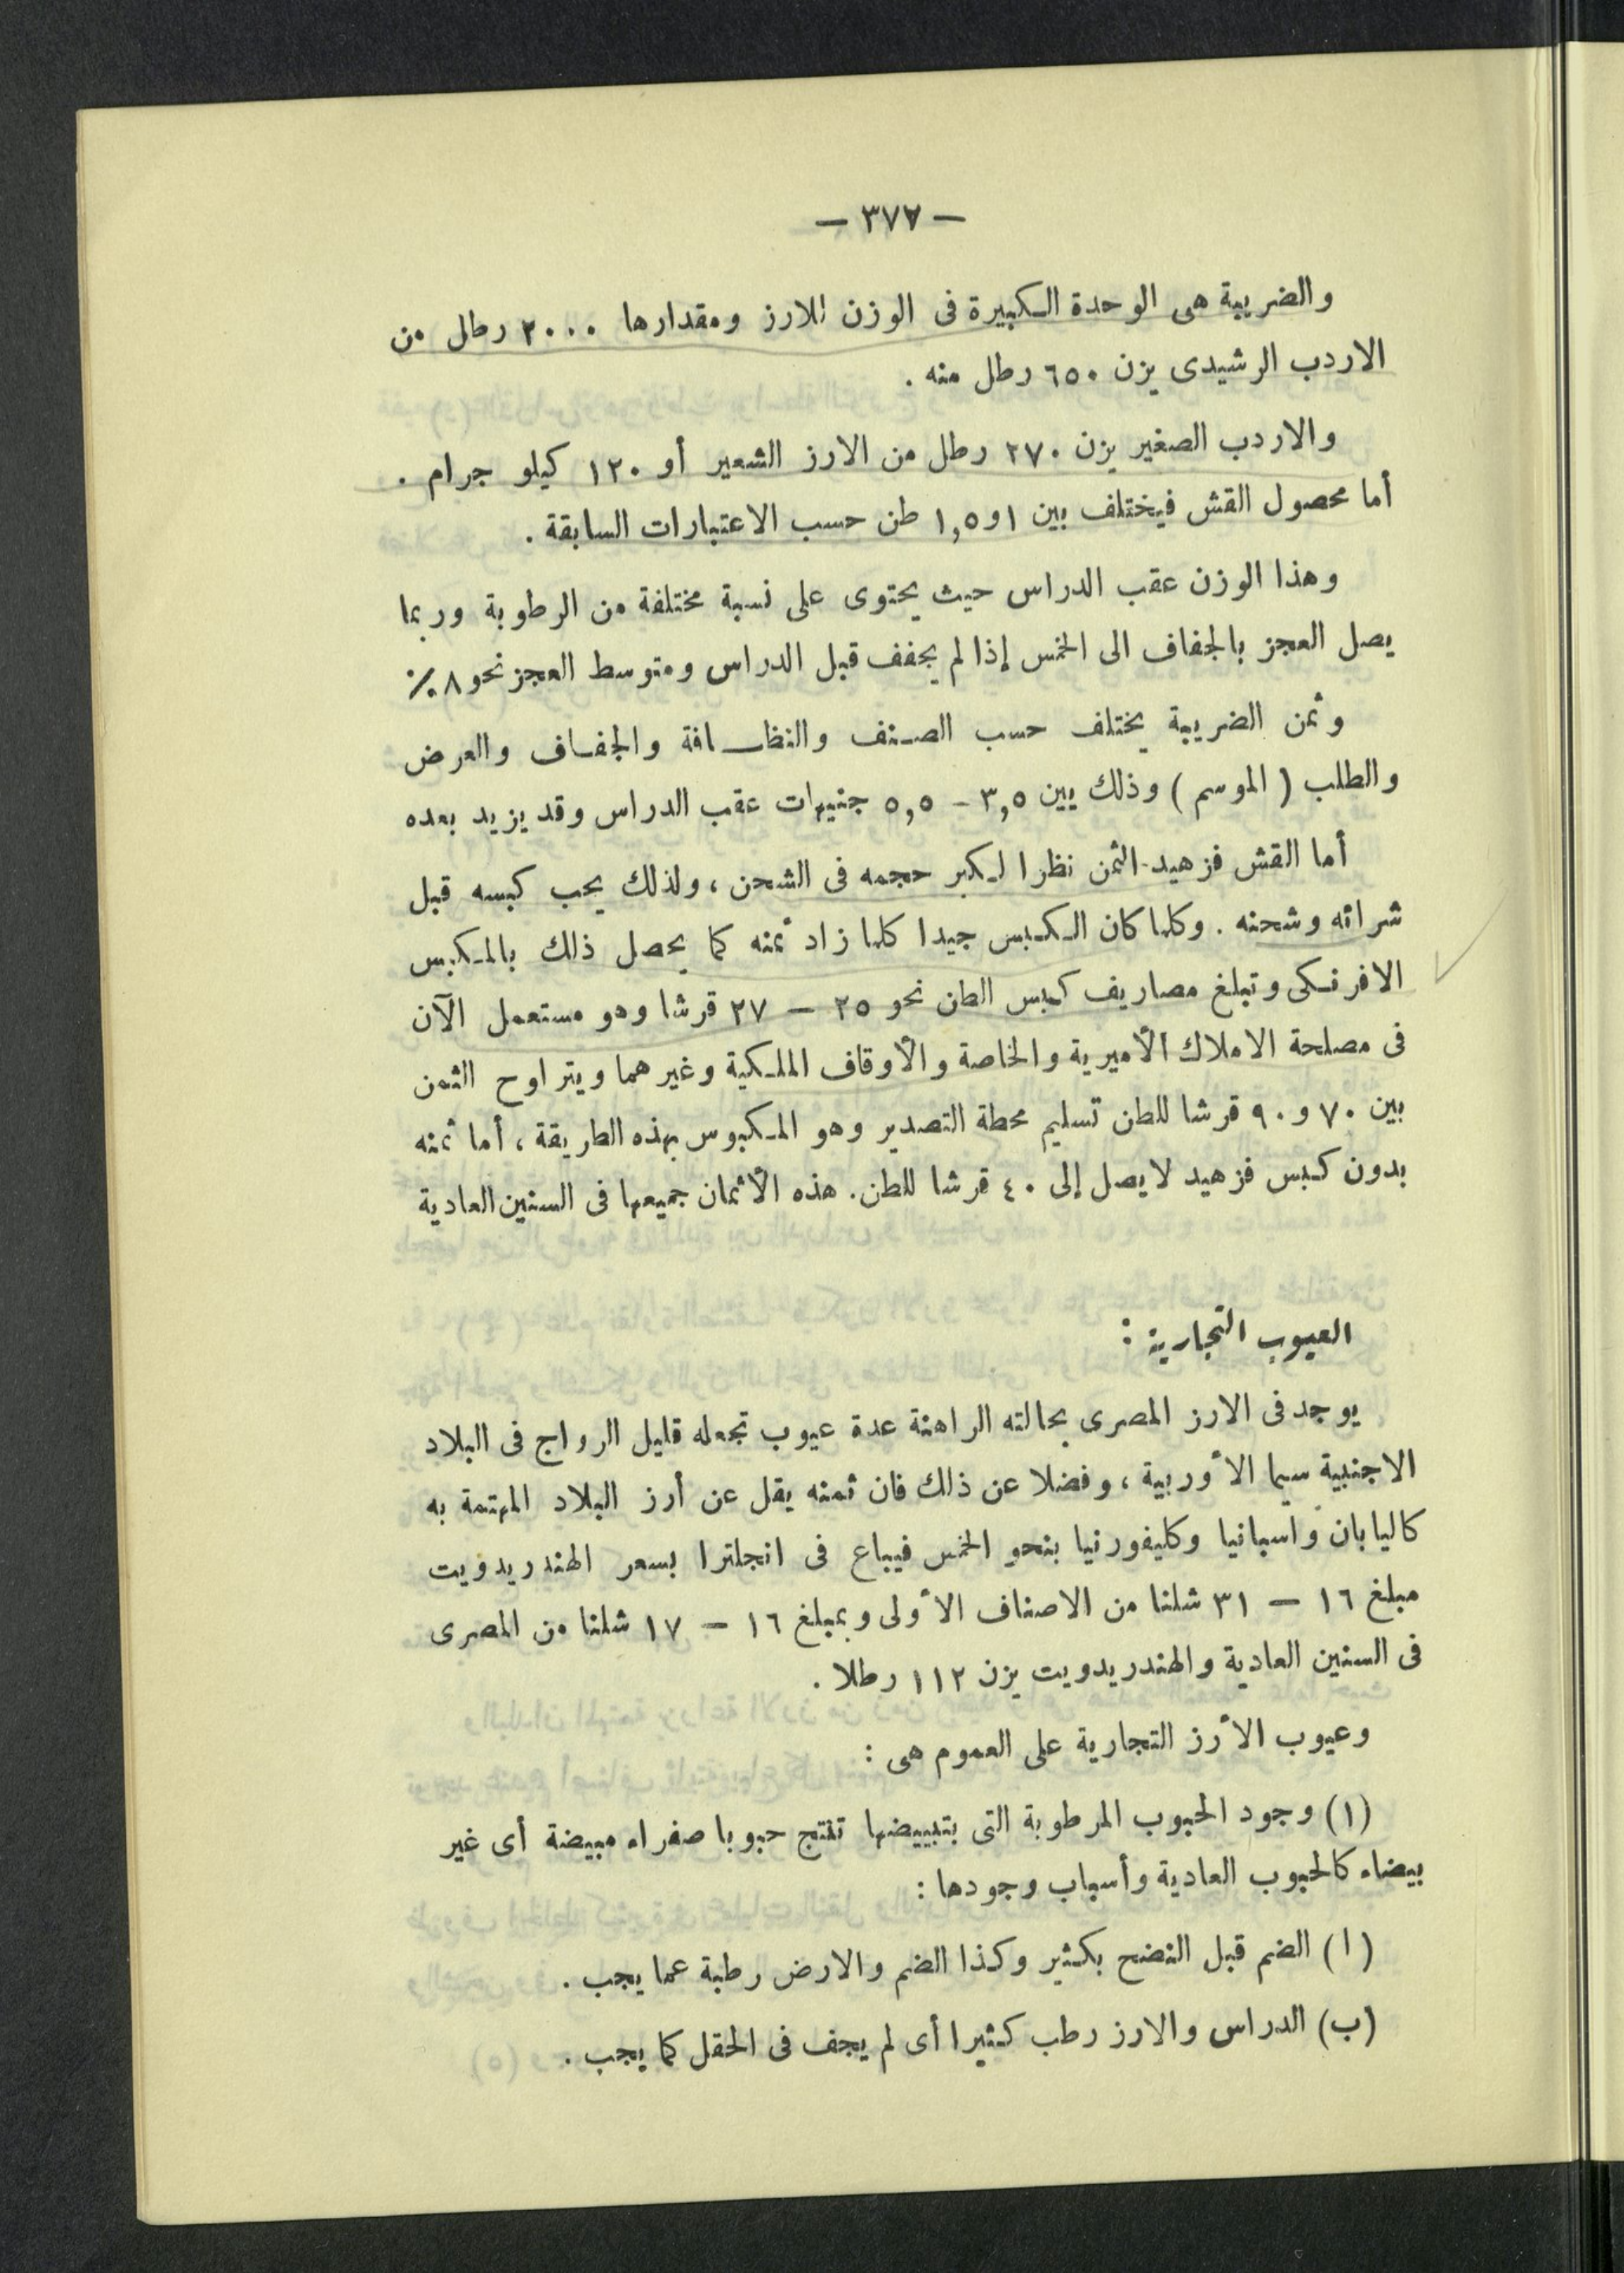 — ٣٧٧ —
والضريبة هى الوحدة الكبيرة فى الوزن للارز ومقدارها ٢٠٠٠ رطل من
الاردب الرشيدى يزن ٦٥٠ رطل منه .
والاردب الصغير يزن ٢٧٠ رطل من الارز الشعير أو ١٢٠ كيلو جرام .
أما محصول القش فيختلف بين ١ و١,٥ طن حسب الاعتبارات السابقة .
وهذا الوزن عقب الدراس حيث يحتوى على نسبة مختلفة من الرطوبة وربما
يصل العجز بالجفاف الى الخمس إذا لم يجفف قبل الدراس ومتوسط العجز نحو ٨ ٪
وثمن الضريبة يختلف حسب الصنف والنظافة والجفاف والعرض
والطلب ( الموسم ) وذلك يين ٣,٥ – ٥,٥ جنيهات عقب الدراس وقد يزيد بعده
أما القش فزهيد الثمن نظرا لكبر حجمه فى الشحن ، ولذلك يجب كبسه قبل
شرائه وشحنه . وكلما كان الكبس جيدا كلما زاد ثمنه كما يحصل ذلك بالمكبس
الافرنكى وتبلغ مصاريف كبس الطن نحو ٢٥ – ٢٧ قرشا وهو مستعمل الآن
فى مصلحة الاملاك الأميرية والخاصة والأوقاف الملكية وغيرهما ويتراوح الثمن
بين ٧٠ و ٩٠ قرشا للطن تسليم محطة التصدير وهو المكبوس بهذه الطريقة ، أما ثمنه
بدون كبس فزهيد لا يصل إلى ٤٠ قرشا للطن . هذه الأثمان جميعها فى السنين العادية
العيوب التجارية :
يوجد فى الارز المصرى بحالته الراهنة عدة عيوب تجعله قليل الرواج فى البلاد
الاجنبية سيما الأوربية ، وفضلا عن ذلك فان ثمنه يقل عن أرز البلاد المهتمة به
كاليابان واسبانيا وكليفورنيا بنحو الخمس فيباع فى انجلترا بسعر الهندريدويت
مبلغ ١٦ – ٣١ شلنا من الاصناف الأولى وبمبلغ ١٦ – ١٧ شلنا من المصرى
فى السنين العادية والهندريدويت يزن ١١٢ رطلا .
وعيوب الأرز التجارية على العموم هى :
(١) وجود الحبوب المرطوبة التى بتبييضها تنتج حبوبا صفراء مبيضة أى غير
بيضاء كالحبوب العادية وأسباب وجودها :
(ا) الضم قبل النضح بكثير وكذا الضم والارض رطبة عما يجب .
(ب) الدراس والارز رطب كثيرا أى لم يجف فى الحقل كما يجب .